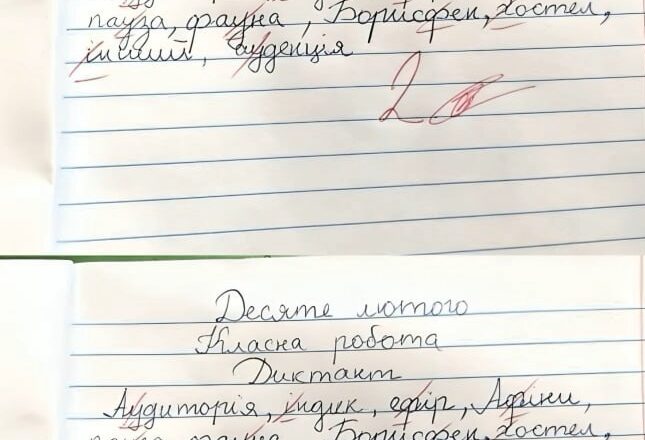 пауза, фауна, Борисфен, хостел,
інший, аудієнція
2
Десяте лютого
Класна робота
Диктант
Аудиторія, індик, ефір, Афіни,
пауза, фауна, Борисфен, хостел,